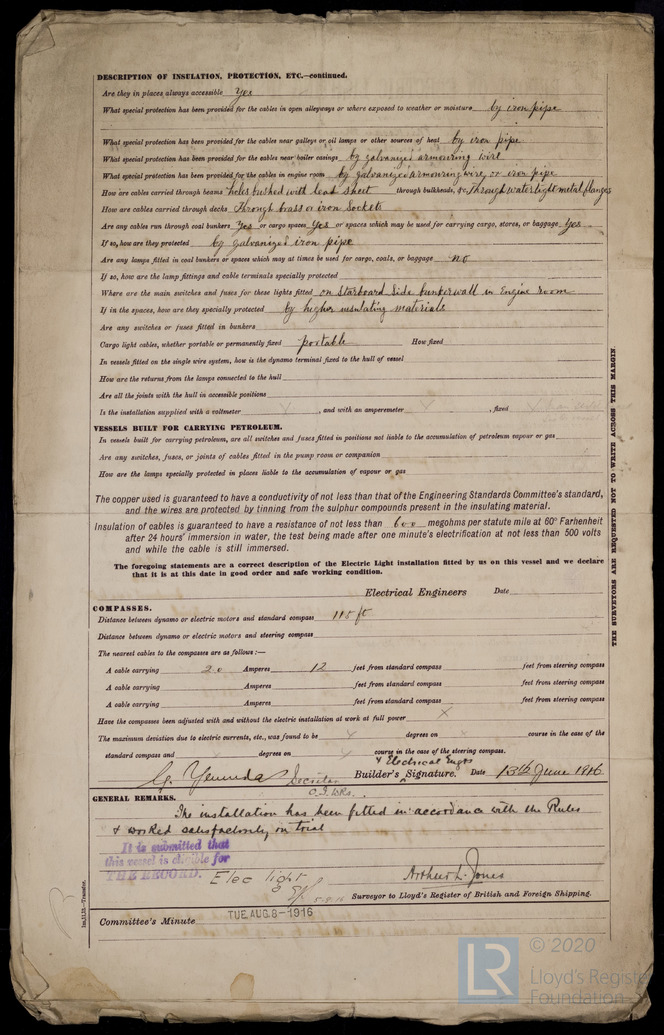 DESCRIPTION OF INSULATION, PROTECTION, ETC.—continued.
Are they in places always accessible Yes
What special protection has been provided for the cables in open alleyways or where exposed to weather or moisture by iron pipe
What special protection has been provided for the cables near galleys or oil lamps or other sources of heat by iron pipe
What special protection has been provided for the cables near boiler casings by galvanized armouring wire
What special protection has been provided for the cables in engine room by galvanized armouring wire, or iron pipe
How are cables carried through beams holes bushed with lead sheet through bulkheads, &c. Through watertight metal flanges
How are cables carried through decks Through brass or iron Sockets
Are any cables run through coal bunkers Yes or cargo spaces Yes or spaces which may be used for carrying cargo, stores, or baggage Yes
If so, how are they protected by galvanized iron pipe
Are any lamps fitted in coal bunkers or spaces which may at times be used for cargo, coals, or baggage no
If so, how are the lamp fittings and cable terminals specially protected
Where are the main switches and fuses for these lights fitted on Starboard Side bunker wall in Engine room
If in the spaces, how are they specially protected by higher insulating materials
Are any switches or fuses fitted in bunkers
Cargo light cables, whether portable or permanently fixed portable How fixed
In vessels fitted on the single wire system, how is the dynamo terminal fixed to the hull of vessel
How are the returns from the lamps connected to the hull
Are all the joints with the hull in accessible positions
Is the installation supplied with a voltmeter , and with an amperemeter , fixed
VESSELS BUILT FOR CARRYING PETROLEUM.
In vessels built for carrying petroleum, are all switches and fuses fitted in positions not liable to the accumulation of petroleum vapour or gas
Are any switches, fuses, or joints of cables fitted in the pump room or companion
How are the lamps specially protected in places liable to the accumulation of vapour or gas
The copper used is guaranteed to have a conductivity of not less than that of the Engineering Standards Committee's standard,
and the wires are protected by tinning from the sulphur compounds present in the insulating material.
Insulation of cables is guaranteed to have a resistance of not less than 600 megohms per statute mile at 60° Farhenheit
after 24 hours' immersion in water, the test being made after one minute's electrification at not less than 500 volts
and while the cable is still immersed.
The foregoing statements are a correct description of the Electric Light installation fitted by us on this vessel and we declare
that it is at this date in good order and safe working condition.
Electrical Engineers Date
COMPASSES.
Distance between dynamo or electric motors and standard compass 115 ft
Distance between dynamo or electric motors and steering compass
The nearest cables to the compasses are as follows:—
A cable carrying 20 Amperes 12 feet from standard compass feet from steering compass
A cable carrying Amperes feet from standard compass feet from steering compass
A cable carrying Amperes feet from standard compass feet from steering compass
Have the compasses been adjusted with and without the electric installation at work at full power X
The maximum deviation due to electric currents, etc., was found to be degrees on course in the case of the
standard compass and degrees on course in the case of the steering compass.
& Electrical Engrs
Builder's Signature. Date 13th June 1916
GENERAL REMARKS.
The installation has been fitted in accordance with the Rules
& worked satisfactorily on trial
It is submitted that
this vessel is eligible for
THE RECORD. Elec light
Arthur L. Jones
Surveyor to Lloyd's Register of British and Foreign Shipping.
Committee's Minute TUE. AUG. 8-1916
THE SURVEYORS ARE REQUESTED NOT TO WRITE ACROSS THIS MARGIN.
LR
© 2020
Lloyd's Register
Foundation